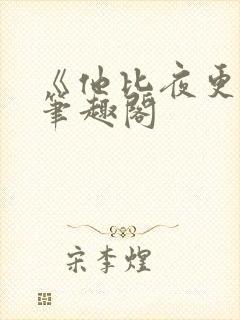 《他比夜更
笔趣阁
宋李煌